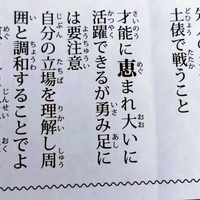 土俵で戦うこと
才能に恵まれ大いに
活躍できるが勇み足に
は要注意
自分の立場を理解し周
囲と調和することでよ